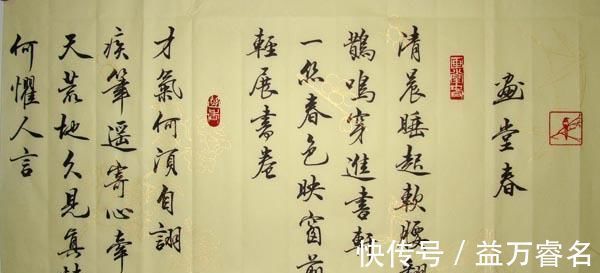 畫堂春
清晨睡起軟腰翻
鵲鳴穿進書軒
一丝春色映窗前
輕展書卷
才氣何須自詡
疾筆遥寄心牽
天荒地久見真情
何懼人言
快传号 / 益万睿名